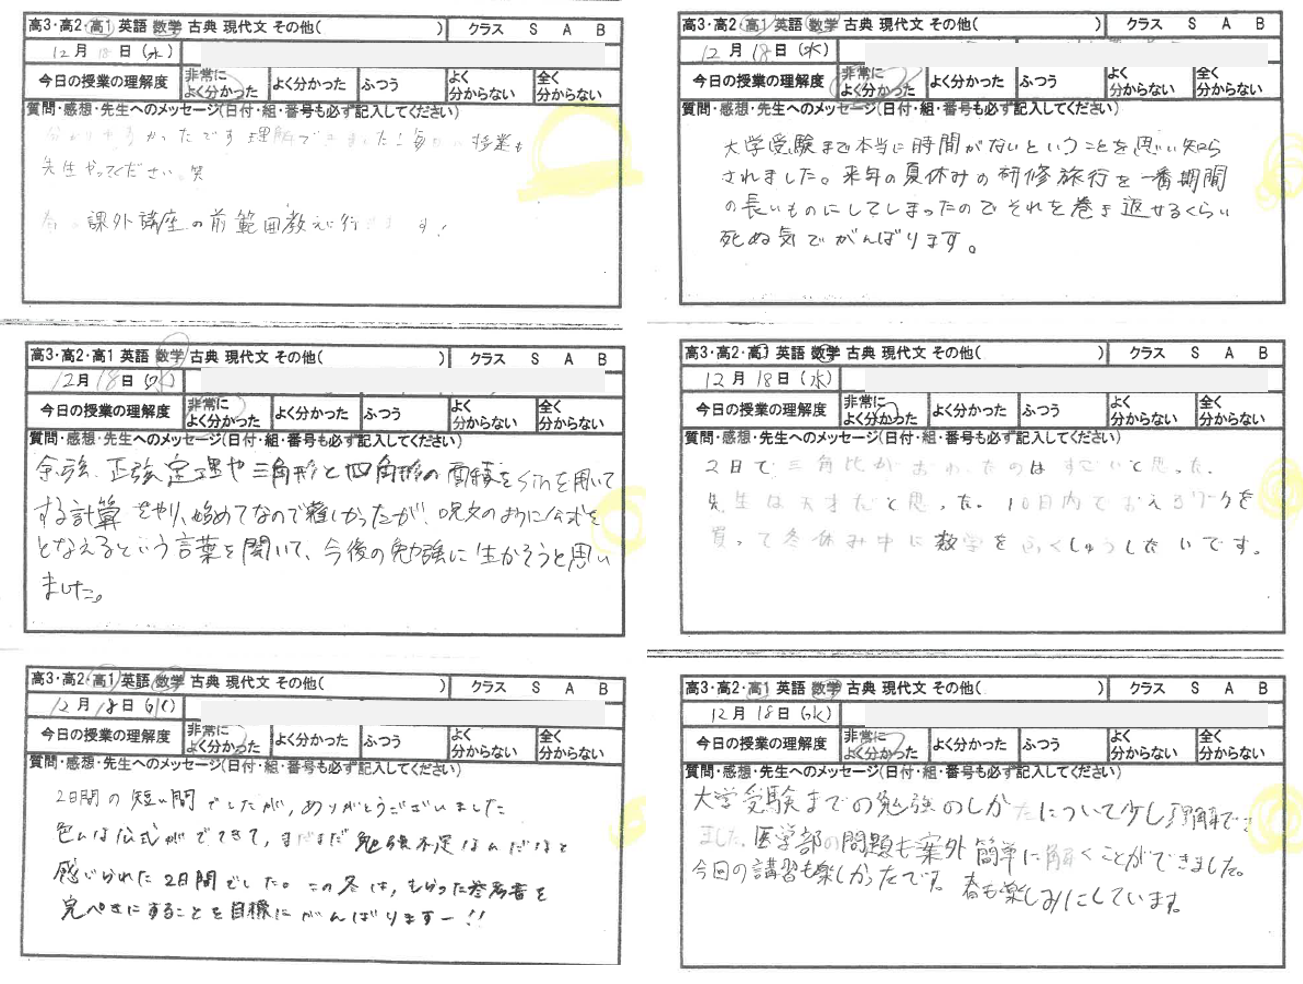 高3・高2・高1 英語 数学 古典 現代文 その他( ) クラス S A B
12月18日(水)
今日の授業の理解度 非常によく分かった よく分かった ふつう よく分からない 全く分からない
質問・感想・先生へのメッセージ(日付・組・番号も必ず記入してください)
かったです 理解できました! 毎 授業も
先生やってください。笑
春の課外講座の前 範囲教えに行きます!
高3・高2・高1 英語 数学 古典 現代文 その他( ) クラス S A B
12月18日(水)
今日の授業の理解度 非常によく分かった よく分かった ふつう よく分からない 全く分からない
質問・感想・先生へのメッセージ(日付・組・番号も必ず記入してください)
大学受験まで本当に時間がないということを思い知ら
されました。来年の夏休みの研修旅行を一番期間
の長いものにしてしまったのでそれを巻き返せるくらい
死ぬ気でがんばります。
高3・高2・高1 英語 数学 古典 現代文 その他( ) クラス S A B
12月18日(水)
今日の授業の理解度 非常によく分かった よく分かった ふつう よく分からない 全く分からない
質問・感想・先生へのメッセージ(日付・組・番号も必ず記入してください)
余弦、正弦定理や三角形と四角形の面積をsinを用いて
する計算をやり、始めてなので難しかったが、呪文のように公式を
となえるという言葉を聞いて、今後の勉強に生かそうと思い
ました。
高3・高2・高1 英語 数学 古典 現代文 その他( ) クラス S A B
12月18日(水)
今日の授業の理解度 非常によく分かった よく分かった ふつう よく分からない 全く分からない
質問・感想・先生へのメッセージ(日付・組・番号も必ず記入してください)
2日で三角比がおわったのはすごいと思った。
先生は天才だと思った。10日内でおえるワークを
買って冬休み中に数学をふくしゅうしたいです。
高3・高2・高1 英語 数学 古典 現代文 その他( ) クラス S A B
12月18日(水)
今日の授業の理解度 非常によく分かった よく分かった ふつう よく分からない 全く分からない
質問・感想・先生へのメッセージ(日付・組・番号も必ず記入してください)
2日間の短い間でしたが、ありがとうございました
色んな公式がでてきて、まだまだ勉強不足なんだなと
感じられた2日間でした。この冬は、もらった参考書を
完ぺきにすることを目標にがんばりますー!!
高3・高2・高1 英語 数学 古典 現代文 その他( ) クラス S A B
12月18日(水)
今日の授業の理解度 非常によく分かった よく分かった ふつう よく分からない 全く分からない
質問・感想・先生へのメッセージ(日付・組・番号も必ず記入してください)
大学受験までの勉強のしかたについて少し理解でき
ました。医学部の問題も案外簡単に解くことができました。
今回の講習も楽しかったです。春も楽しみにしています。